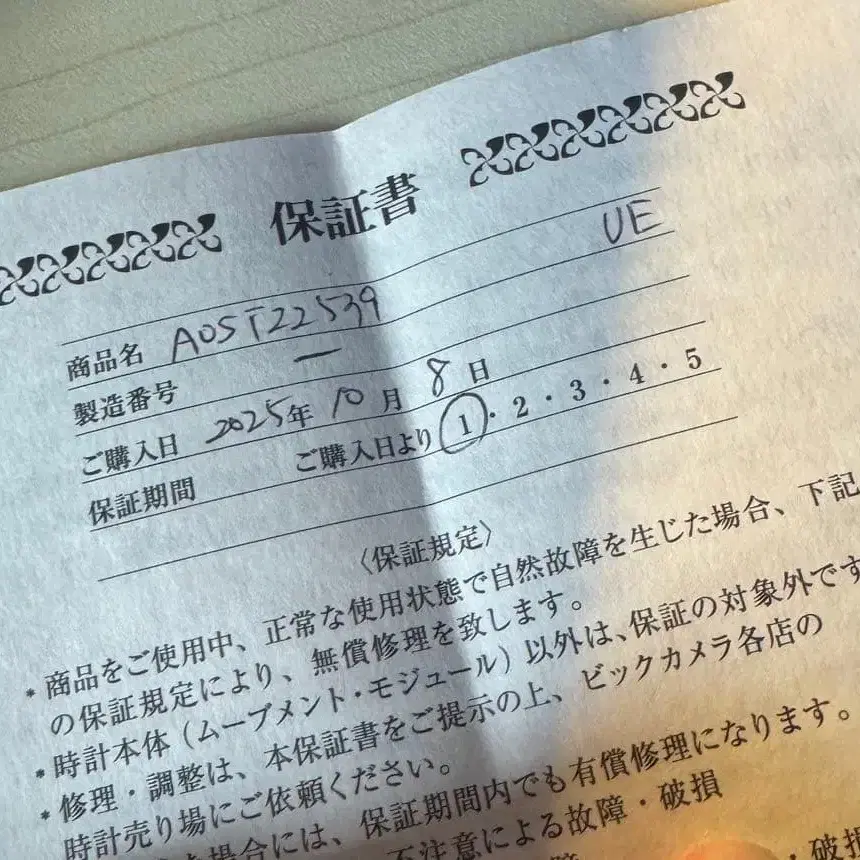 保証書
UE
商品名 AOST22539
製造番号 ー
ご購入日 2025年 10月 8日
保証期間 ご購入日より 1・2・3・4・5
〈保証規定〉
*商品をご使用中、正常な使用状態で自然故障を生じた場合、下記
の保証規定により、無償修理を致します。
*時計本体（ムーブメント・モジュール）以外は、保証の対象外です
*修理・調整は、本保証書をご提示の上、ビックカメラ各店の
時計売り場にご依頼ください。
場合には、保証期間内でも有償修理になります。
不注意による故障・破損
・破損